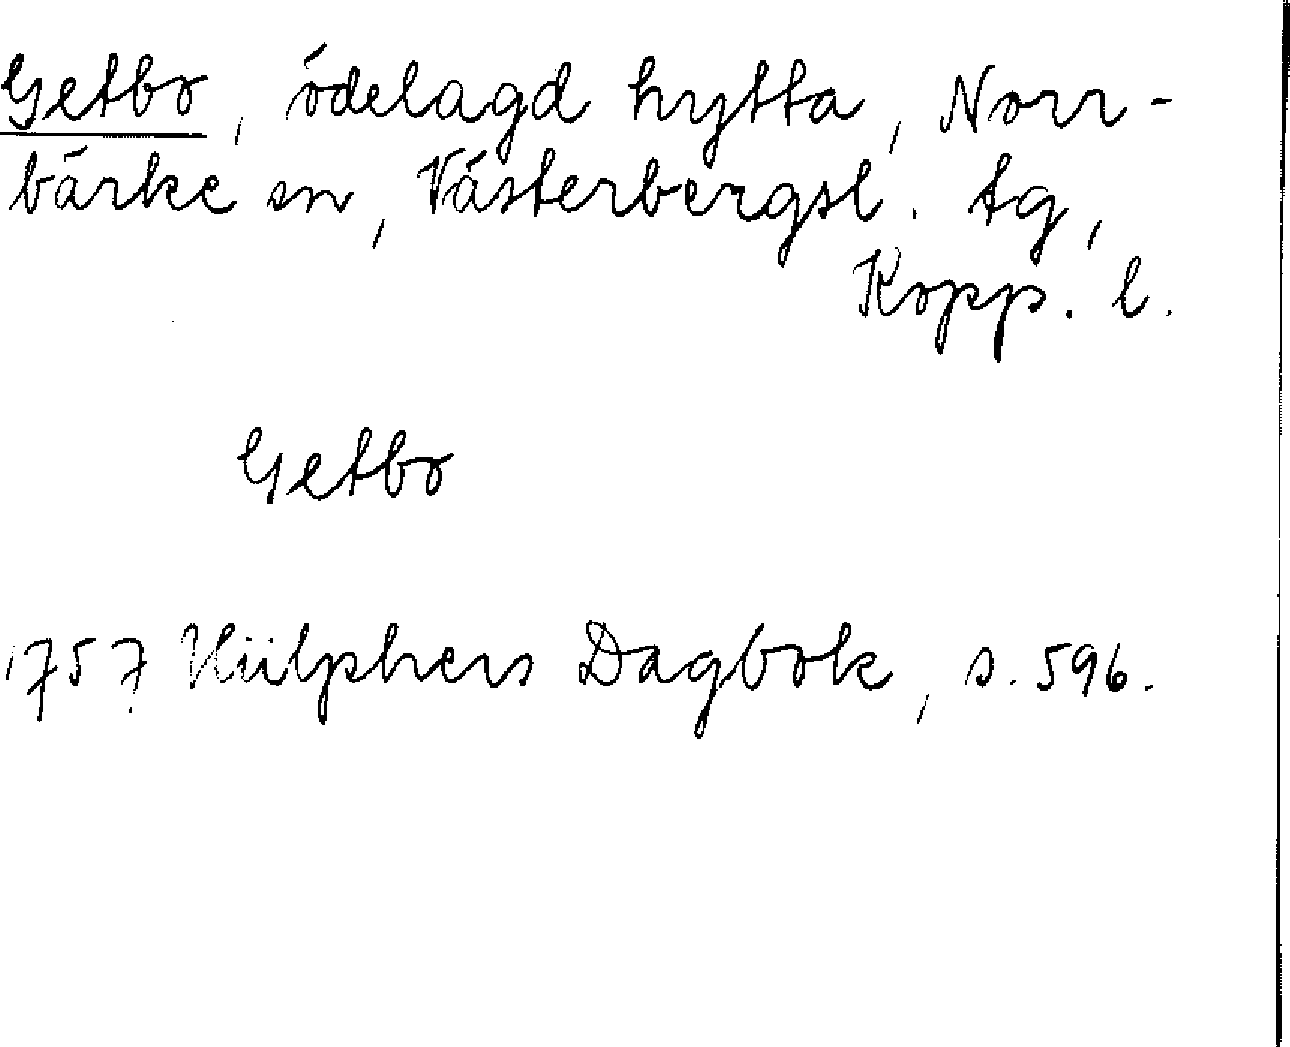 Getbo, ödelagd hytta, Norr-
bärke sn, Västerbergsl. tg,
Kopp. l.
Getbo
1757 Hülphers Dagbok, s. 596.